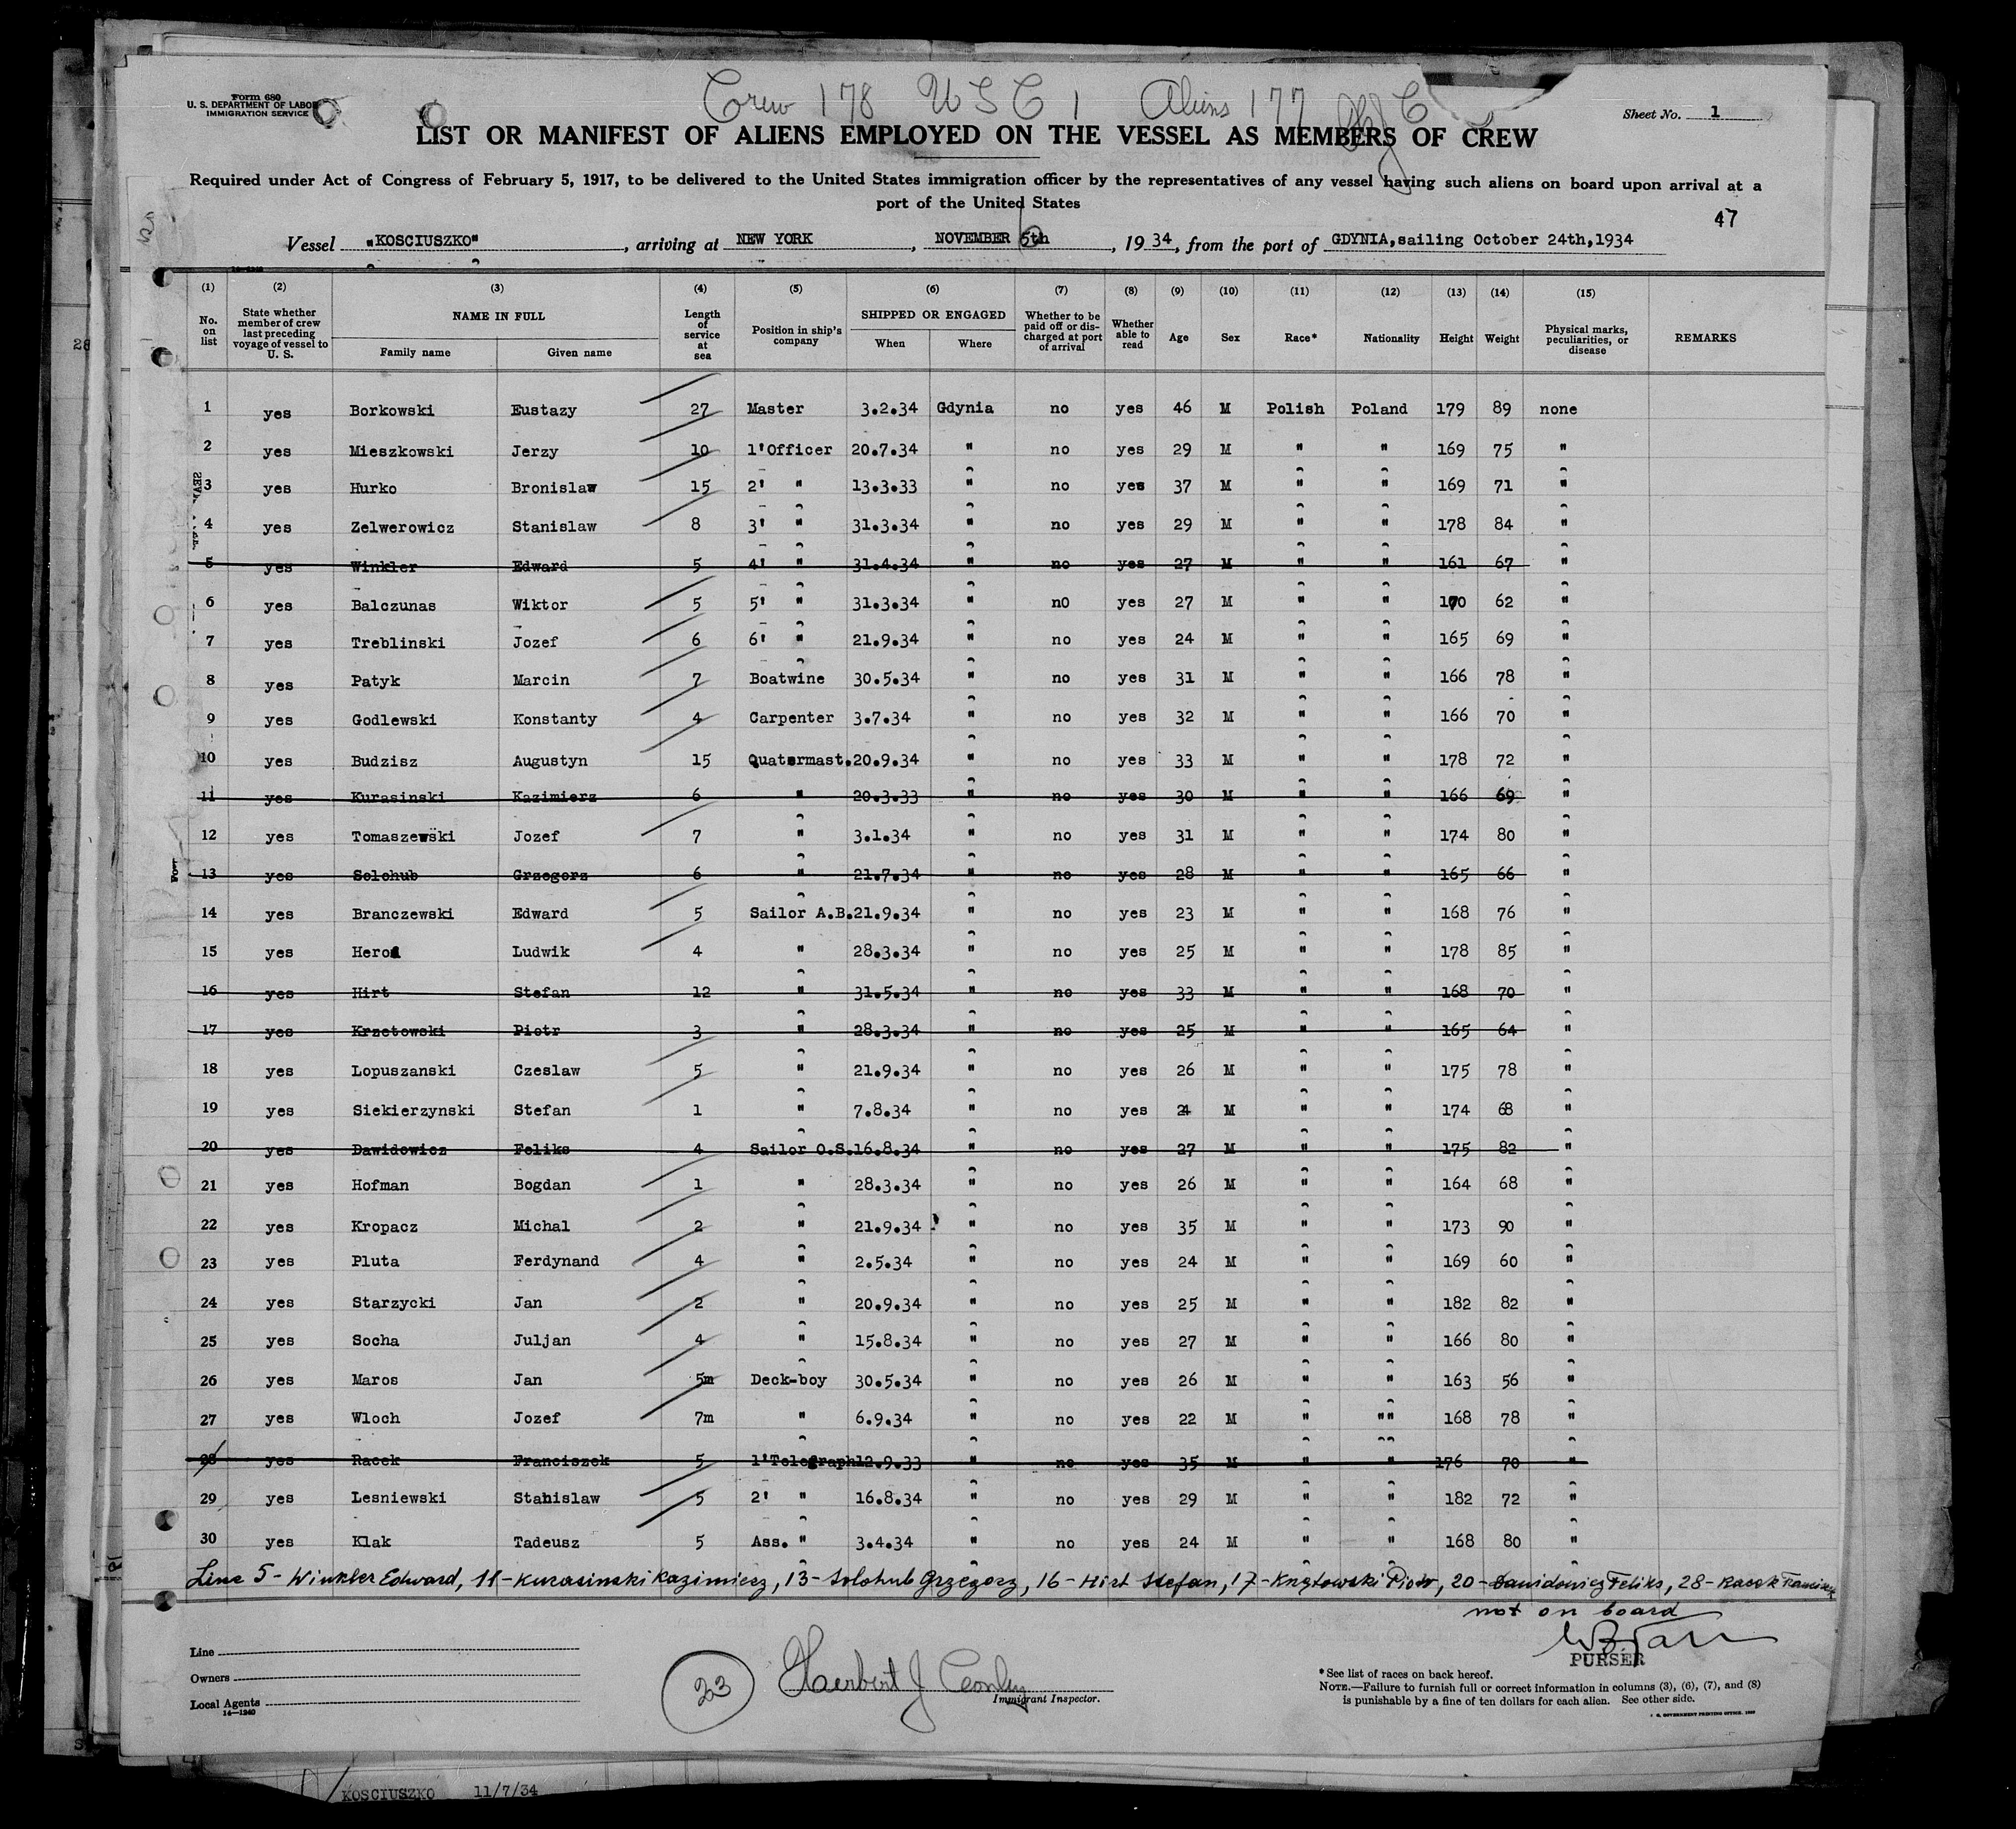 Crew 178 USC 1 Aliens 177
Form 680
U. S. DEPARTMENT OF LABOR
IMMIGRATION SERVICE
Sheet No. 1
LIST OR MANIFEST OF ALIENS EMPLOYED ON THE VESSEL AS MEMBERS OF CREW
Required under Act of Congress of February 5, 1917, to be delivered to the United States immigration officer by the representatives of any vessel having such aliens on board upon arrival at a
port of the United States
47
Vessel "KOSCIUSZKO", arriving at NEW YORK, NOVEMBER 5th, 1934, from the port of GDYNIA, sailing October 24th, 1934
(1) (2) (3) (4) (5) (6) (7) (8) (9) (10) (11) (12) (13) (14) (15)
No. on list | State whether member of crew last preceding voyage of vessel to U. S. | NAME IN FULL Family name Given name | Length of service at sea | Position in ship's company | SHIPPED OR ENGAGED When Where | Whether to be paid off or discharged at port of arrival | Whether able to read | Age | Sex | Race* | Nationality | Height | Weight | Physical marks, peculiarities, or disease | REMARKS
1 yes Borkowski Eustazy 27 Master 3.2.34 Gdynia no yes 46 M Polish Poland 179 89 none
2 yes Mieszkowski Jerzy 10 1'Officer 20.7.34 " no yes 29 M " " 169 75 "
3 yes Hurko Bronislaw 15 2' " 13.3.33 " no yes 37 M " " 169 71 "
4 yes Zelwerowicz Stanislaw 8 3' " 31.3.34 " no yes 29 M " " 178 84 "
5 yes Winkler Edward 5 4' " 31.4.34 " no yes 27 M " " 161 67 "
6 yes Balczunas Wiktor 5 5' " 31.3.34 " n0 yes 27 M " " 170 62 "
7 yes Treblinski Jozef 6 6' " 21.9.34 " no yes 24 M " " 165 69 "
8 yes Patyk Marcin 7 Boatwine 30.5.34 " no yes 31 M " " 166 78 "
9 yes Godlewski Konstanty 4 Carpenter 3.7.34 " no yes 32 M " " 166 70 "
10 yes Budzisz Augustyn 15 Quatermast. 20.9.34 " no yes 33 M " " 178 72 "
11 yes Kurasinski Kazimierz 6 " 20.3.33 " no yes 30 M " " 166 69 "
12 yes Tomaszewski Jozef 7 " 3.1.34 " no yes 31 M " " 174 80 "
13 yes Solohub Grzegorz 6 " 21.7.34 " no yes 28 M " " 165 66 "
14 yes Branczewski Edward 5 Sailor A.B. 21.9.34 " no yes 23 M " " 168 76 "
15 yes Ludwik 4 " 28.3.34 " no yes 25 M " " 178 85 "
16 yes Hirt Stefan 12 " 31.5.34 " no yes 33 M " " 168 70 "
17 yes Krzetowski Piotr 3 " 28.3.34 " no yes 25 M " " 165 64 "
18 yes Lopuszanski Czeslaw 5 " 21.9.34 " no yes 26 M " " 175 78 "
19 yes Siekierzynski Stefan 1 " 7.8.34 " no yes 24 M " " 174 68 "
20 yes Dawidowicz Feliks 4 Sailor O.S. 16.8.34 " no yes 27 M " " 175 82 "
21 yes Hofman Bogdan 1 " 28.3.34 " no yes 26 M " " 164 68 "
22 yes Kropacz Michal 2 " 21.9.34 " no yes 35 M " " 173 90 "
23 yes Pluta Ferdynand 4 " 2.5.34 " no yes 24 M " " 169 60 "
24 yes Starzycki Jan 2 " 20.9.34 " no yes 25 M " " 182 82 "
25 yes Socha Juljan 4 " 15.8.34 " no yes 27 M " " 166 80 "
26 yes Maros Jan 5m Deck-boy 30.5.34 " no yes 26 M " " 163 56 "
27 yes Wloch Jozef 7m " 6.9.34 " no yes 22 M " "" 168 78 "
28 yes Racek Franciszek 5 1'Telegraph 12.9.33 " no yes 35 M " " 176 70 "
29 yes Lesniewski Stanislaw 5 2' " 16.8.34 " no yes 29 M " " 182 72 "
30 yes Klak Tadeusz 5 Ass. " 3.4.34 " no yes 24 M " " 168 80 "
Line 5 - Winkler Edward, 11 - Kurasinski Kazimierz, 13 - Solohub Grzegorz, 16 - Hirt Stefan, 17 - Krzetowski Piotr, 20 - Dawidowicz Feliks, 28 - Racek Franciszek
not on board
PURSER
Line
Owners
Local Agents
14—1240
23
Herbert J Conley
Immigrant Inspector.
*See list of races on back hereof.
NOTE.—Failure to furnish full or correct information in columns (3), (6), (7), and (8)
is punishable by a fine of ten dollars for each alien. See other side.
KOSCIUSZKO 11/7/34